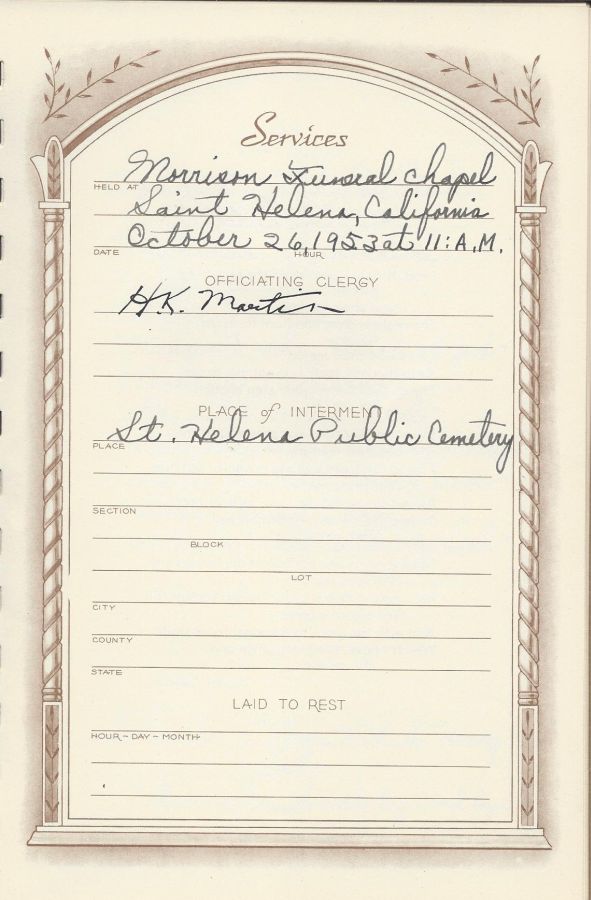 Services
Morrison Funeral Chapel
HELD AT
Saint Helena, California
October 26, 1953 at 11: A.M.
DATE HOUR
OFFICIATING CLERGY
H.K. Martin
PLACE of INTERMENT
St. Helena Public Cemetery
PLACE
SECTION
BLOCK
LOT
CITY
COUNTY
STATE
LAID TO REST
HOUR – DAY – MONTH